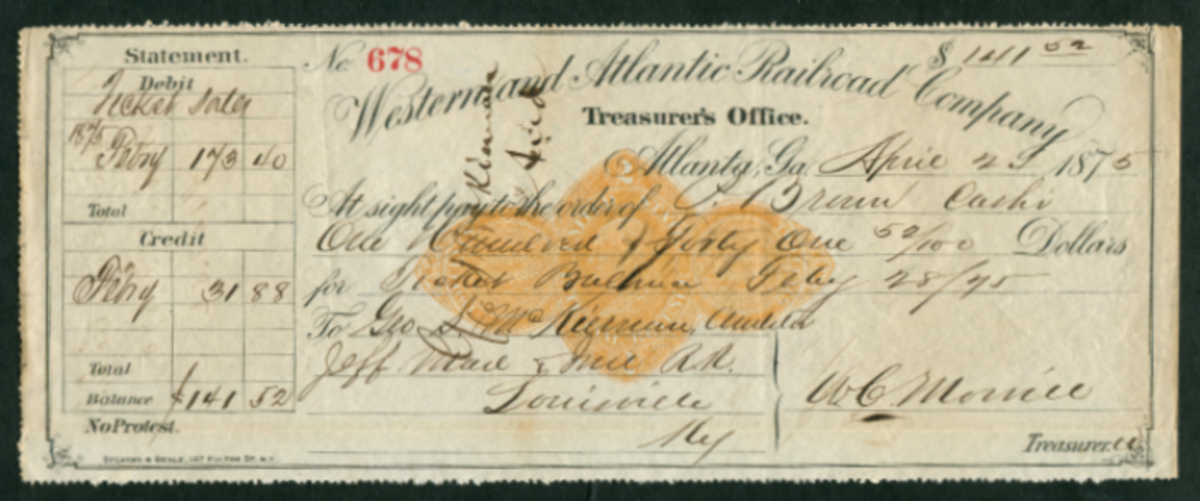 Statement.
Debit
Ticket Sales
1875
Febry 173 40
Total
Credit
Febry 31 88
Total
Balance $141 52
No Protest.
No. 678
$ 141 52
Western and Atlantic Railroad Company
Treasurer's Office.
Atlanta, Ga. April 1875
At sight pay to the order of J. Brown Cashr
One Hundred & Forty One 52/100 Dollars
for Ticket Balance Feby 28/75
To Geo S. McKiernan, Auditor
Jeff Mad & Ind R.R.
Louisville
Ky
W C Morrill
Treasurer.